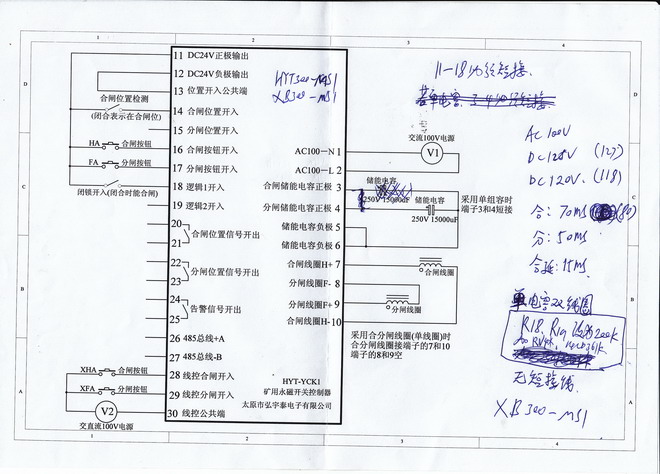 1
2
3
4
D
C
B
A
11 DC24V正极输出
12 DC24V负极输出
13 位置开入公共端
14 合闸位置开入
15 分闸位置开入
16 合闸按钮开入
17 分闸按钮开入
18 逻辑1开入
19 逻辑2开入
20
合闸位置信号开出
21
22
分闸位置信号开出
23
24
告警信号开出
25
26 485总线+A
27 485总线-B
28 线控合闸开入
29 线控分闸开入
30 线控公共端
合闸位置检测
(闭合表示在合闸位)
HA 合闸按钮
FA 分闸按钮
闭锁开入(闭合时能合闸)
XHA 合闸按钮
XFA 分闸按钮
V2
交直流100V电源
HYT300-MS1
XB300-MS1
AC100-N 1
AC100-L 2
合闸储能电容正极 3
分闸储能电容正极 4
储能电容负极 5
储能电容负极 6
合闸线圈H+ 7
分闸线圈F- 8
分闸线圈F+ 9
合闸线圈H- 10
HYT-YCK1
矿用永磁开关控制器
太原市弘宇泰电子有限公司
交流100V电源
V1
储能电容
250V 15000uF
储能电容
250V 15000uF
采用单组容时
端子3和4短接
合闸线圈
分闸线圈
采用合分闸线圈(单线圈)时
合分闸线圈接端子的7和10
端子的8和9空
11-18必须短接
AC 100V
DC 128V (127)
DC 120V (118)
合: 70ms (80)
分: 50ms
合延: 15ms
单电容双线圈
R18、R19 改为200k
无短接线
XB300-MS1
1
2
3
4
D
C
B
A